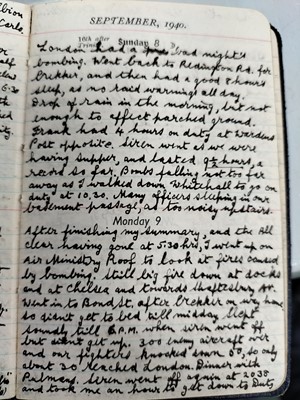 SEPTEMBER, 1940.
16th after Trinity Sunday 8
London had a bad night's
bombing. Went back to Redington Rd. for
brekker, and then had a good 8 hours
sleep, as no raid warnings all day.
Drop of rain in the morning, but not
enough to affect parched ground.
Frank had 4 hours on duty at Wardens
Post opposite. Siren went as we were
having supper, and lasted 9½ hours, a
record so far. Bombs falling not too far
away as I walked down Whitehall to go on
duty at 10.20. Many officers sleeping in our
basement passage, as too noisy upstairs.
Monday 9
After finishing my summary, and the All
clear having gone at 5.30 hrs, I went up on
Air Ministry Roof to look at fires caused
by bombing. Still big fire down at docks
and at Chelsea and towards Shaftesbury Av.
Went in to Bond St. after brekker on way home
so didn't get to bed till midday. Slept
soundly till 6 P.M. when siren went off
but didn't get up. 300 enemy aircraft over
and our fighters knocked down 50, so only
about 30 reached London. Dinner with
Palmary. Siren went off again at 2038
and took me an hour to get down to Duty